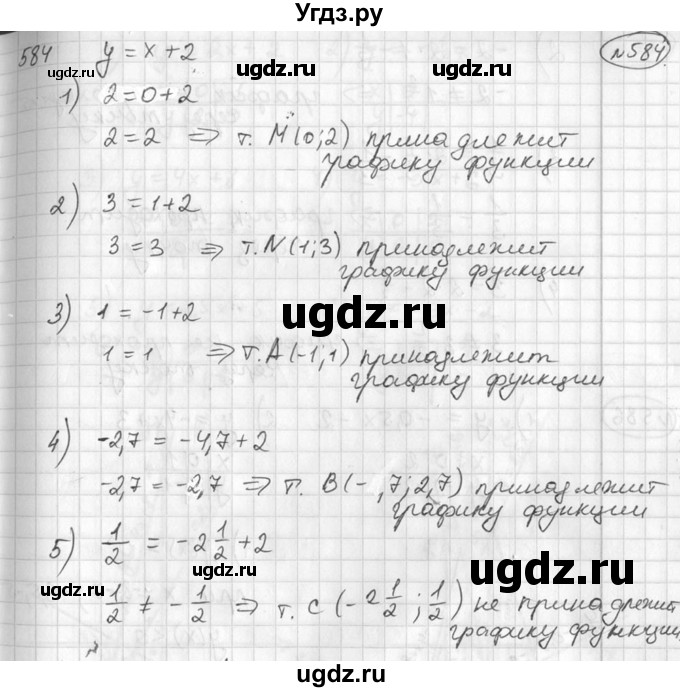 Угдз.ру
584 y = x + 2 N584
ugdz.ru ugdz.ru ugdz.ru
1) 2 = 0 + 2
2 = 2 ⇒ т. M(0;2) принадлежит
графику функции
ugdz.ru ugdz.ru
2) 3 = 1 + 2
3 = 3 ⇒ т. N(1;3) принадлежит
графику функции
ugdz.ru ugdz.ru
ugdz.ru
3) 1 = -1 + 2
1 = 1 ⇒ т. A(-1;1) принадлежит
графику функции
ugdz.ru ugdz.ru
4) -2,7 = -4,7 + 2
-2,7 = -2,7 ⇒ т. B(- ,7; 2,7) принадлежит
графику функции
ugdz.ru ugdz.ru
5) 1/2 = -2 1/2 + 2
ugdz.ru ugdz.ru ugdz.ru
1/2 ≠ -1/2 ⇒ т. C(-2 1/2; 1/2) не принадлежит
графику функции
ugdz.ru ugdz.ru
ugdz.ru